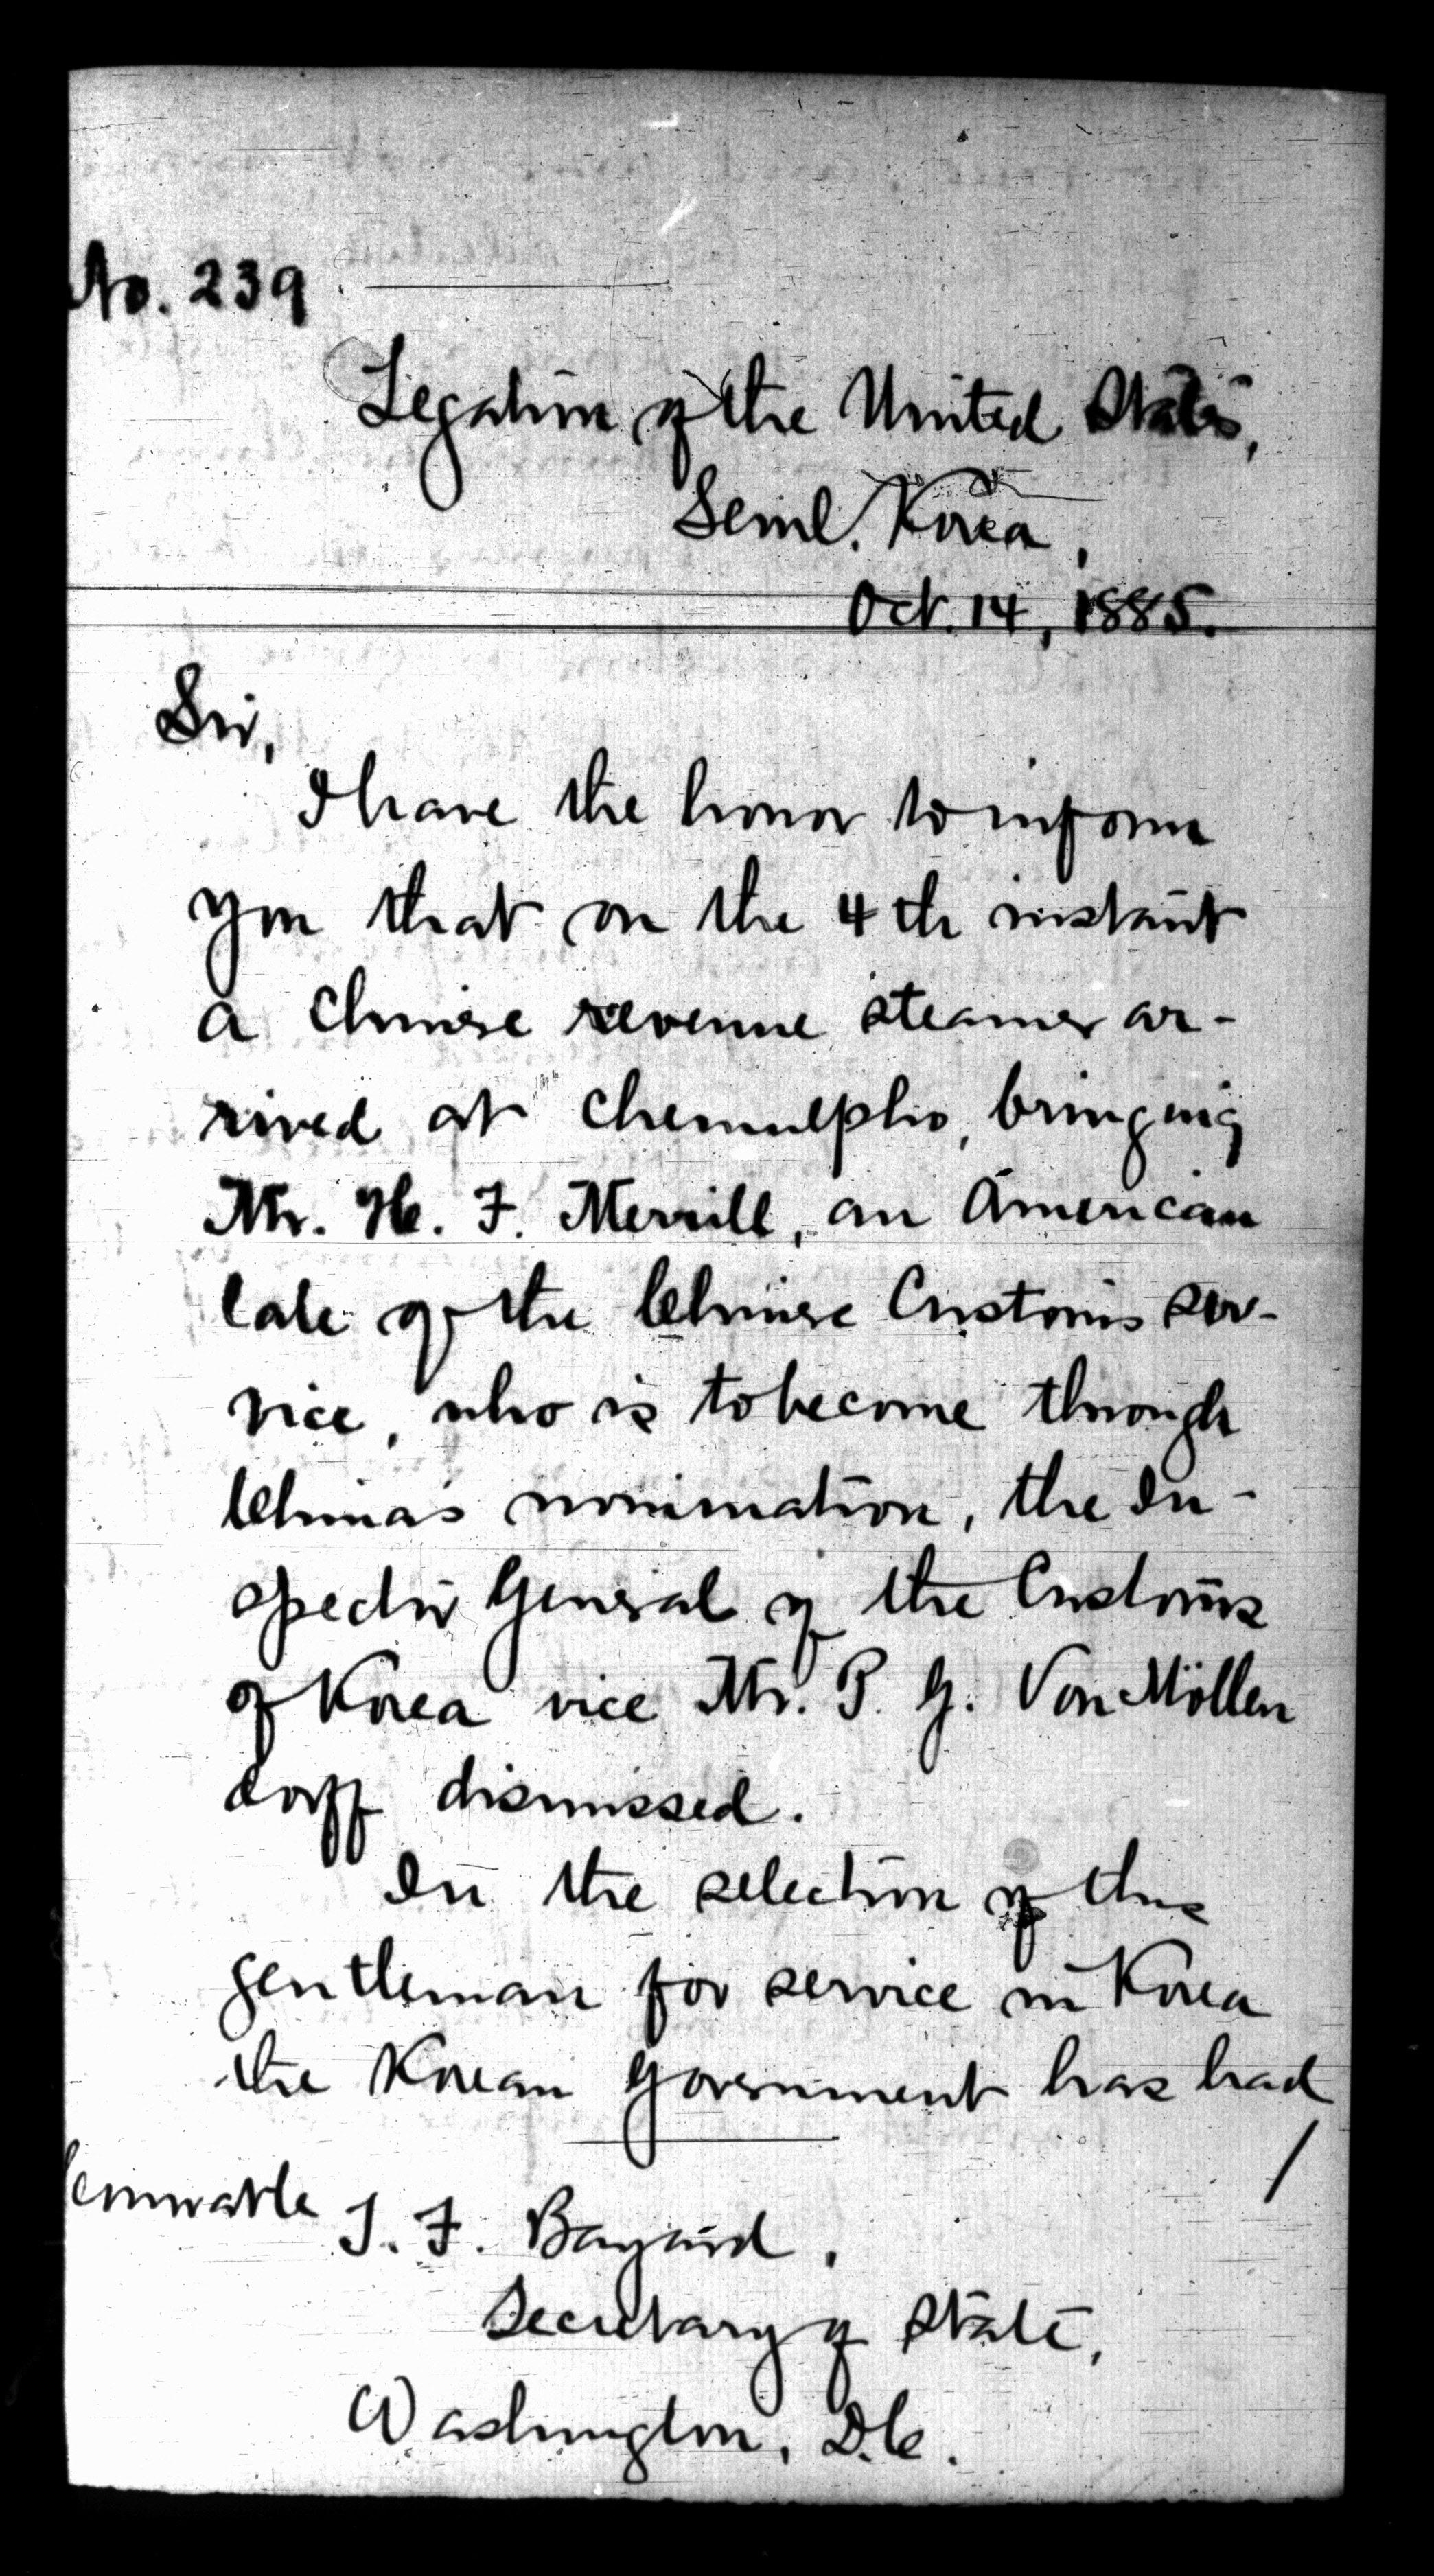 No. 239
Legation of the United States,
Seoul. Korea,
Oct. 14, 1885.
Sir,
I have the honor to inform
you that on the 4th instant
a Chinese revenue steamer ar-
rived at Chemulpho, bringing
Mr. H. F. Merrill, an American
late of the Chinese Customs ser-
vice, who is to become through
China's nomination, the In-
spector General of the Customs
of Korea vice Mr. P. G. Von Möllen
dorff dismissed.
In the selection of this
gentleman for service in Korea
the Korean Government has had
T. F. Bayard,
Secretary of State,
Washington, D.C.